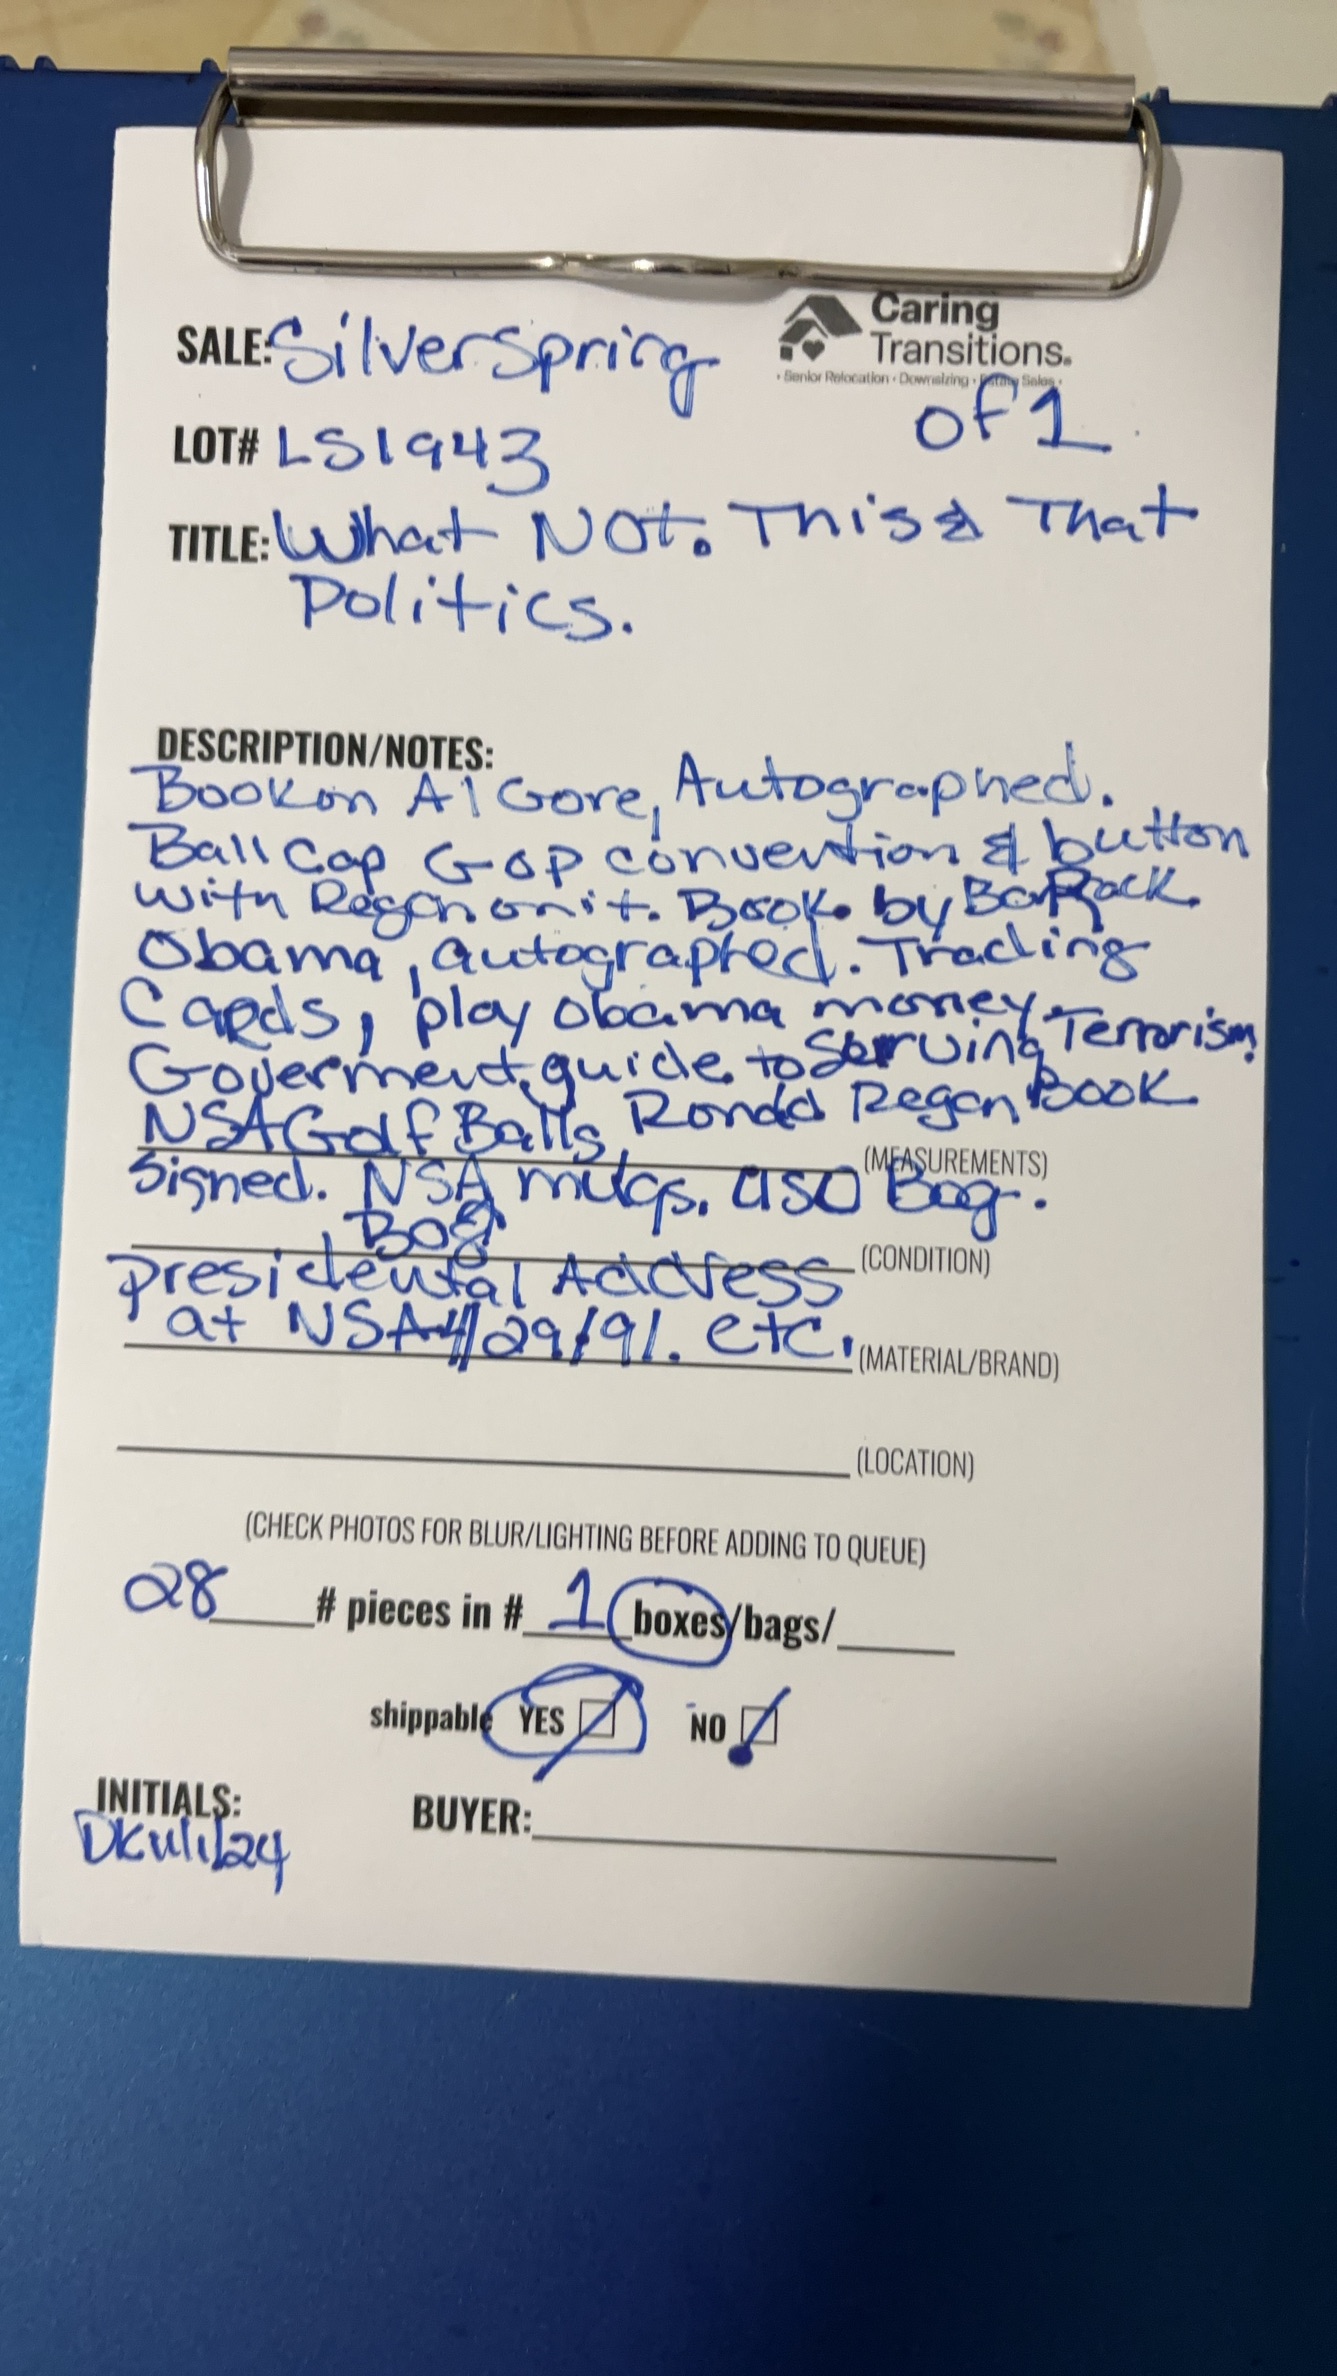 Caring
Transitions.
• Senior Relocation • Downsizing • Estate Sales •
SALE: Silver Spring
of 1
LOT# LS1943
TITLE: What NOT. This & That
Politics.
DESCRIPTION/NOTES:
Book on Al Gore, Autographed.
Ball Cap GOP convention & button
with Regan on it. Book. by Barack
Obama, autographed. Trading
Cards, play Obama money. Terrorism
Goverment guide to Serving
NSA Golf Balls, Ronald Regan Book
(MEASUREMENTS)
Signed. NSA mugs. USO Bag.
Bag
(CONDITION)
presidental Address
at NSA 4/29/91. etc.
(MATERIAL/BRAND)
(LOCATION)
(CHECK PHOTOS FOR BLUR/LIGHTING BEFORE ADDING TO QUEUE)
28 # pieces in # 1 boxes/bags/
shippable YES NO
INITIALS:
BUYER: